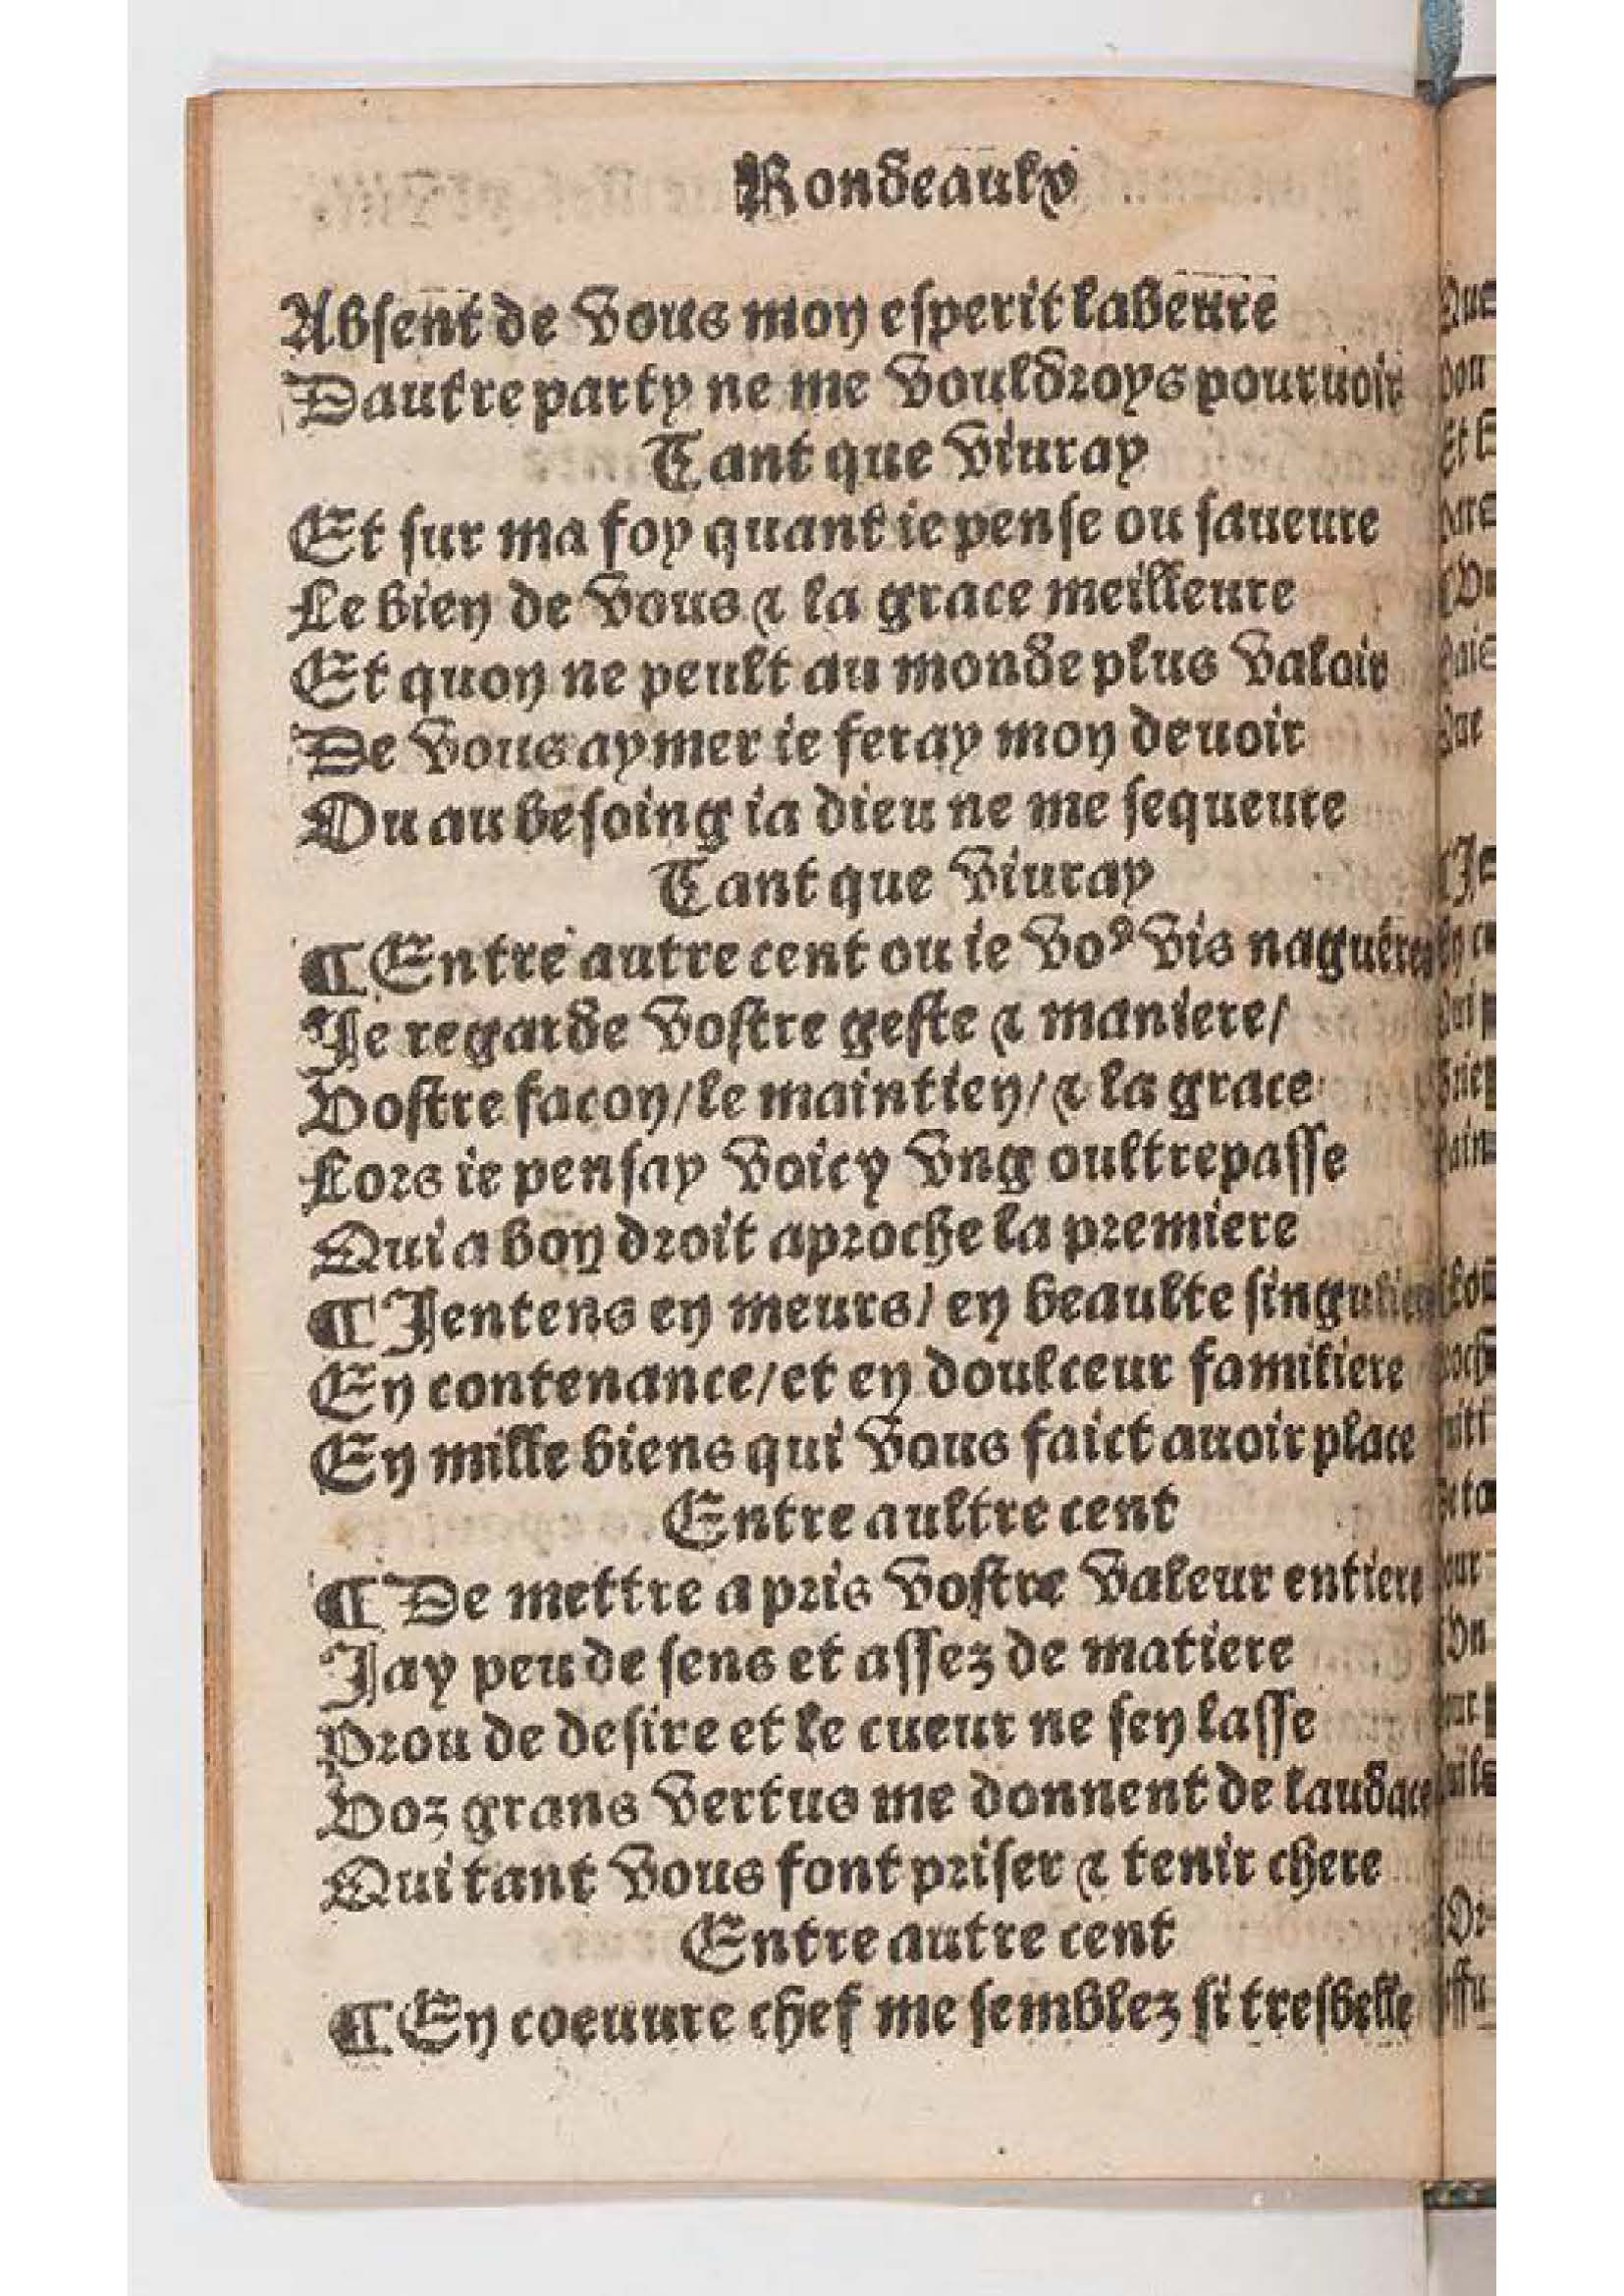 Rondeaulx
Absent de vous mon esperit labeure
Dautre party ne me vouldroys pouruoir
Tant que viuray
Et sur ma foy quant ie pense ou saueure
Le bien de vous & la grace meilleure
Et quon ne peult au monde plus valoir
De vous aymer ie feray mon deuoir
Ou au besoing ia dieu ne me sequeure
Tant que viuray
¶ Entre autre cent ou ie voꝰ vis nagueres
Je regarde vostre geste & maniere/
Vostre facon/le maintien/& la grace
Lors ie pensay voicy vng oultrepasse
Qui a bon droit aproche la premiere
¶ Jentens en meurs/ en beaulte singuliere
En contenance/et en doulceur familiere
En mille biens qui vous faict auoir place
Entre aultre cent
¶ De mettre a pris vostre valeur entiere
Jay peu de sens et assez de matiere
Prou de desire et le cueur ne sen lasse
Voz grans vertus me donnent de laudace
Qui tant vous font priser & tenir chere
Entre autre cent
¶ En coeuure chef me semblez si tresbelle